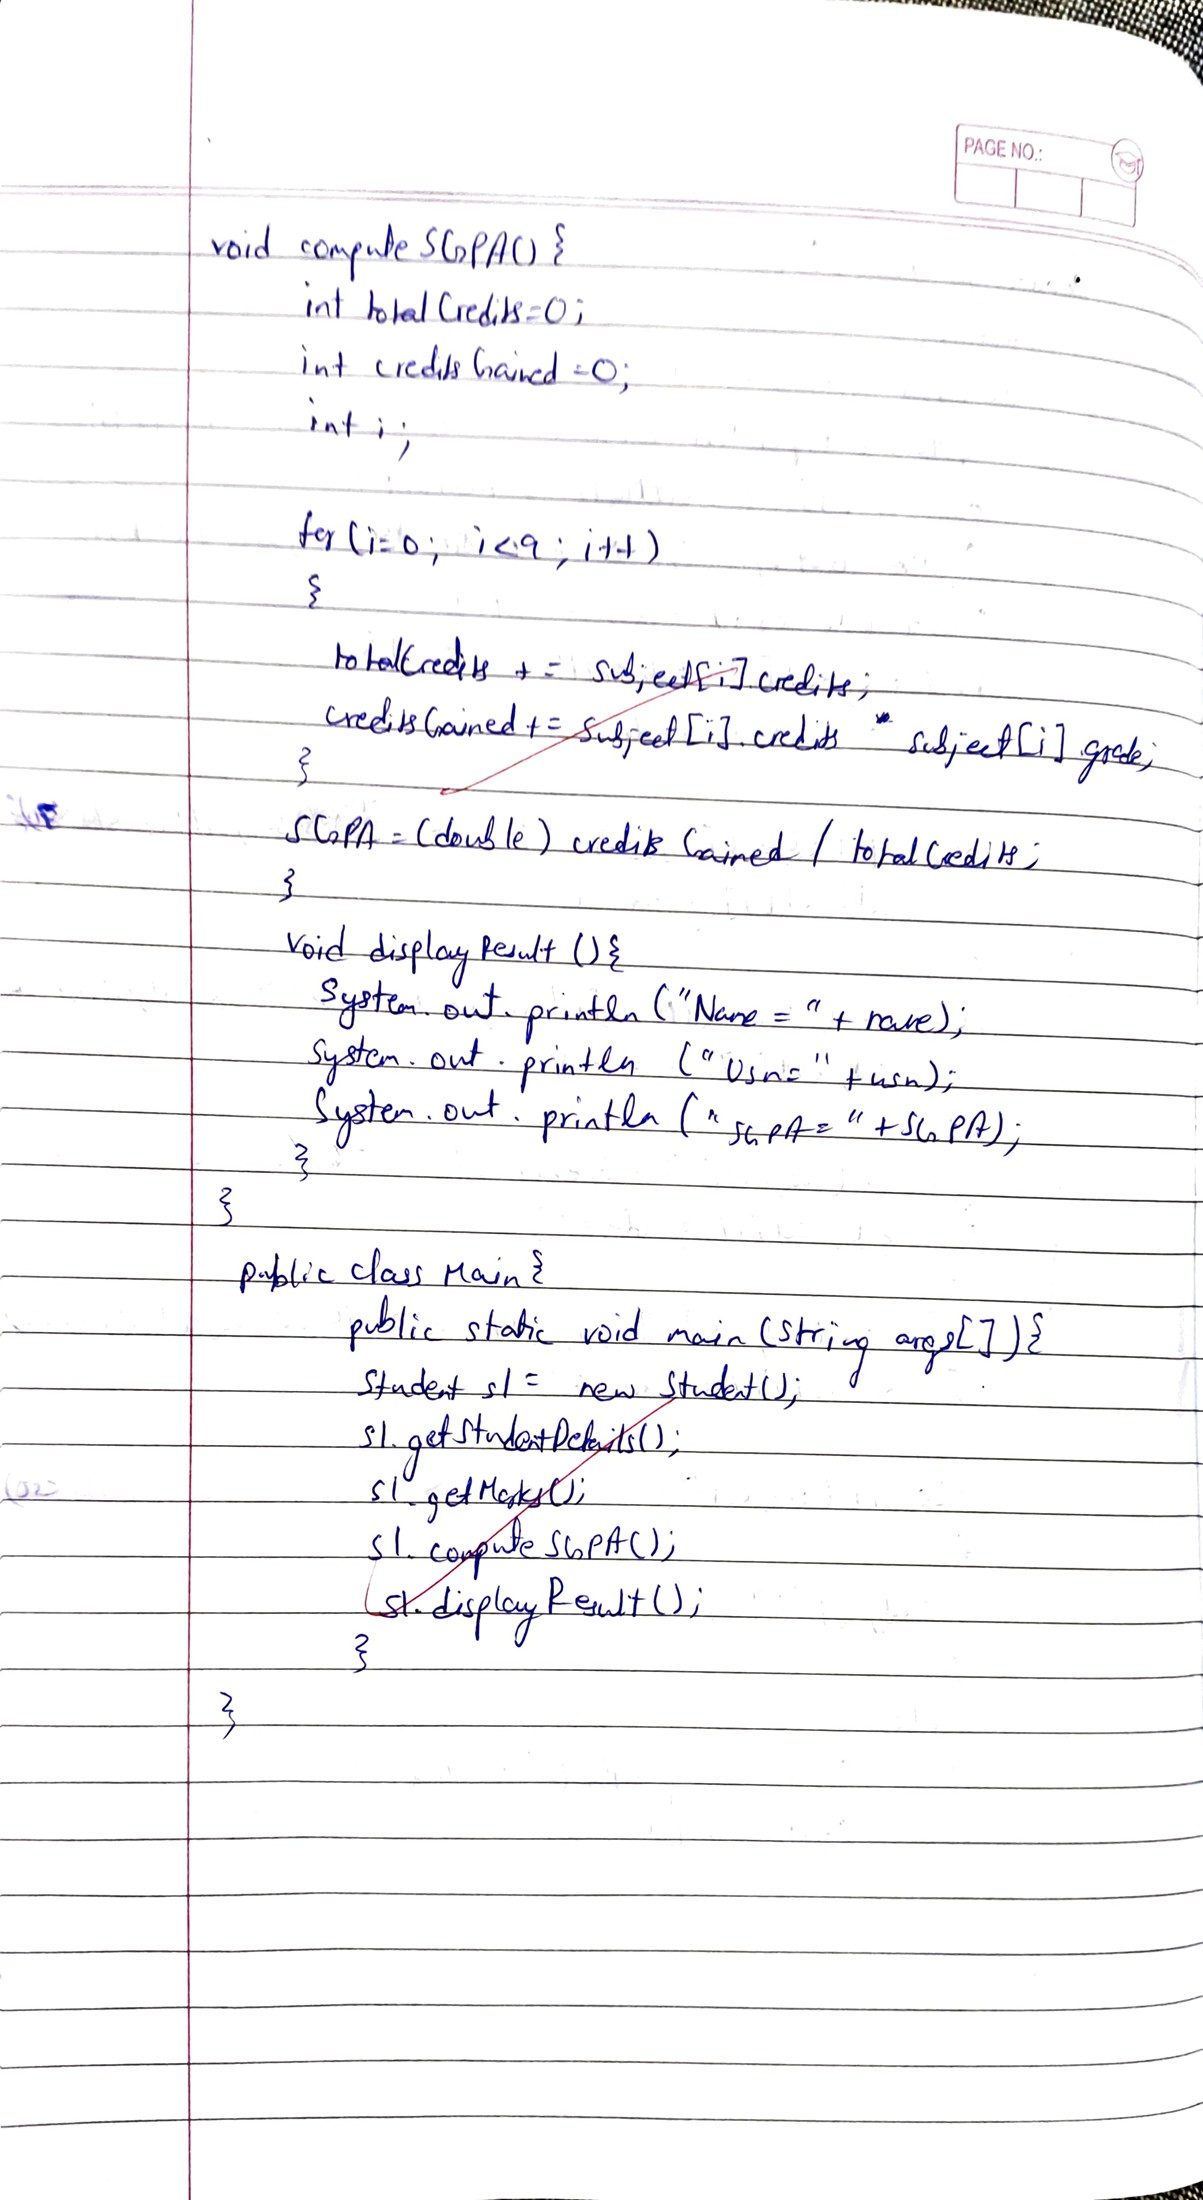 PAGE NO.:
void computeSGPA() {
int totalCredits=0;
int creditsGained=0;
int i;
for (i=0; i<9; i++)
{
totalCredits += subject[i] credits;
creditsGained += subject[i].credits * subject[i].grade;
}
SGPA = (double) creditsGained / totalCredits;
}
void displayResult () {
System.out.println ("Name = " + name);
System.out.println ("Usn= " + usn);
System.out.println ("SGPA= " + SGPA);
}
}
public class Main {
public static void main (String args[]) {
Student s1 = new Student();
s1.getStudentDetails();
s1.getMarks();
s1.computeSGPA();
s1.displayResult();
}
}